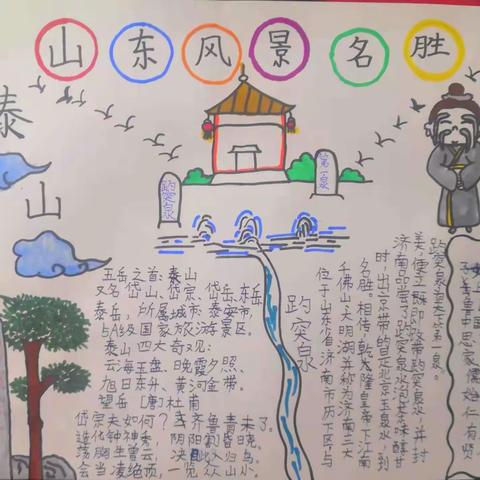 山东风景名胜
泰山
趵突泉
第一泉
五岳之首:泰山
又名岱山、岱宗、岱岳、东岳
泰岳,所属城市:泰安市,
A级国家旅游景区。
泰山四大奇又见:
云海玉盘、晚霞夕照、
旭日东升、黄河金带。
望岳 [唐]杜甫
岱宗夫如何?齐鲁青未了。
造化钟神秀,阴阳割昏晓。
荡胸生曾云,决入归鸟。
会当凌绝顶,一览众山小。
趵突泉
位于山东省济南市历下区,与
千佛山、大明湖并称为济南三大
名胜。相传,乾隆皇帝下江南
时,出京带的是北京玉泉水,到
济南品尝了趵突泉水泡茶味醇甘
美,便立即改带趵突泉水,并封
趵突泉为天下第一泉。